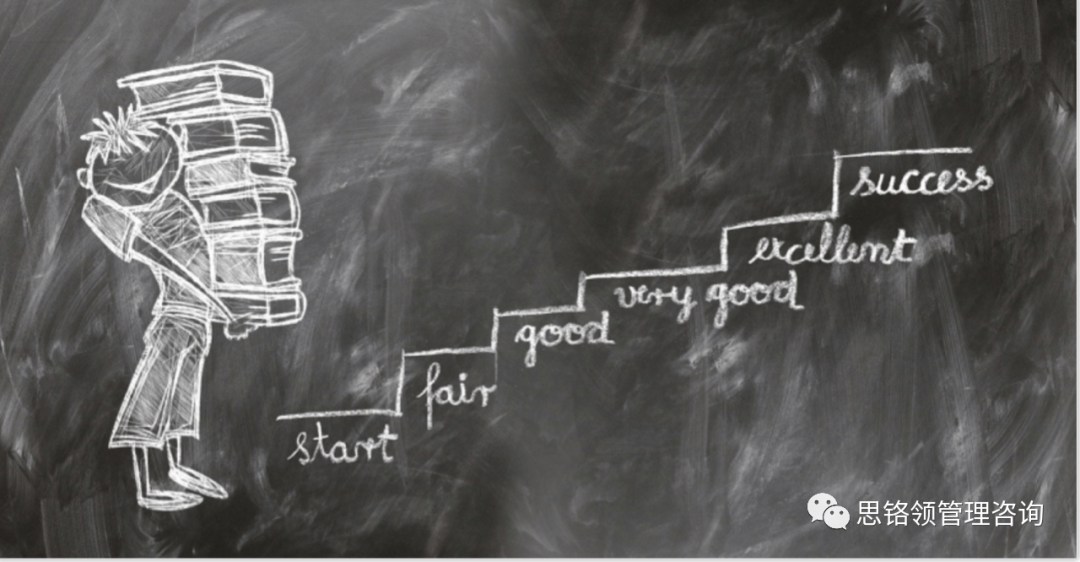 start
fair
good
very good
excellent
success
思铬领管理咨询